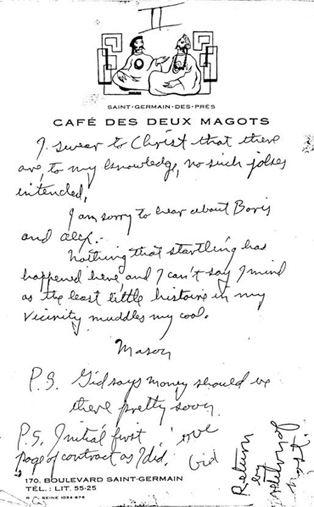 II
SAINT-GERMAIN-DES-PRÉS
CAFÉ DES DEUX MAGOTS
I swear to Christ that there
are to my knowledge, no such jokes
intended.
I am sorry to hear about Boris
and Alex.
Nothing that startling has
happened here, and I can't say I mind
as the least little histoire in my
vicinity muddles my cool.
Mason
P.S. Gid says money should be
there pretty soon.
P.S. Initial first
page of contract as I did.
Gid
Return
by
return of
post.
170, BOULEVARD SAINT-GERMAIN
TÉL.: LIT. 55-25